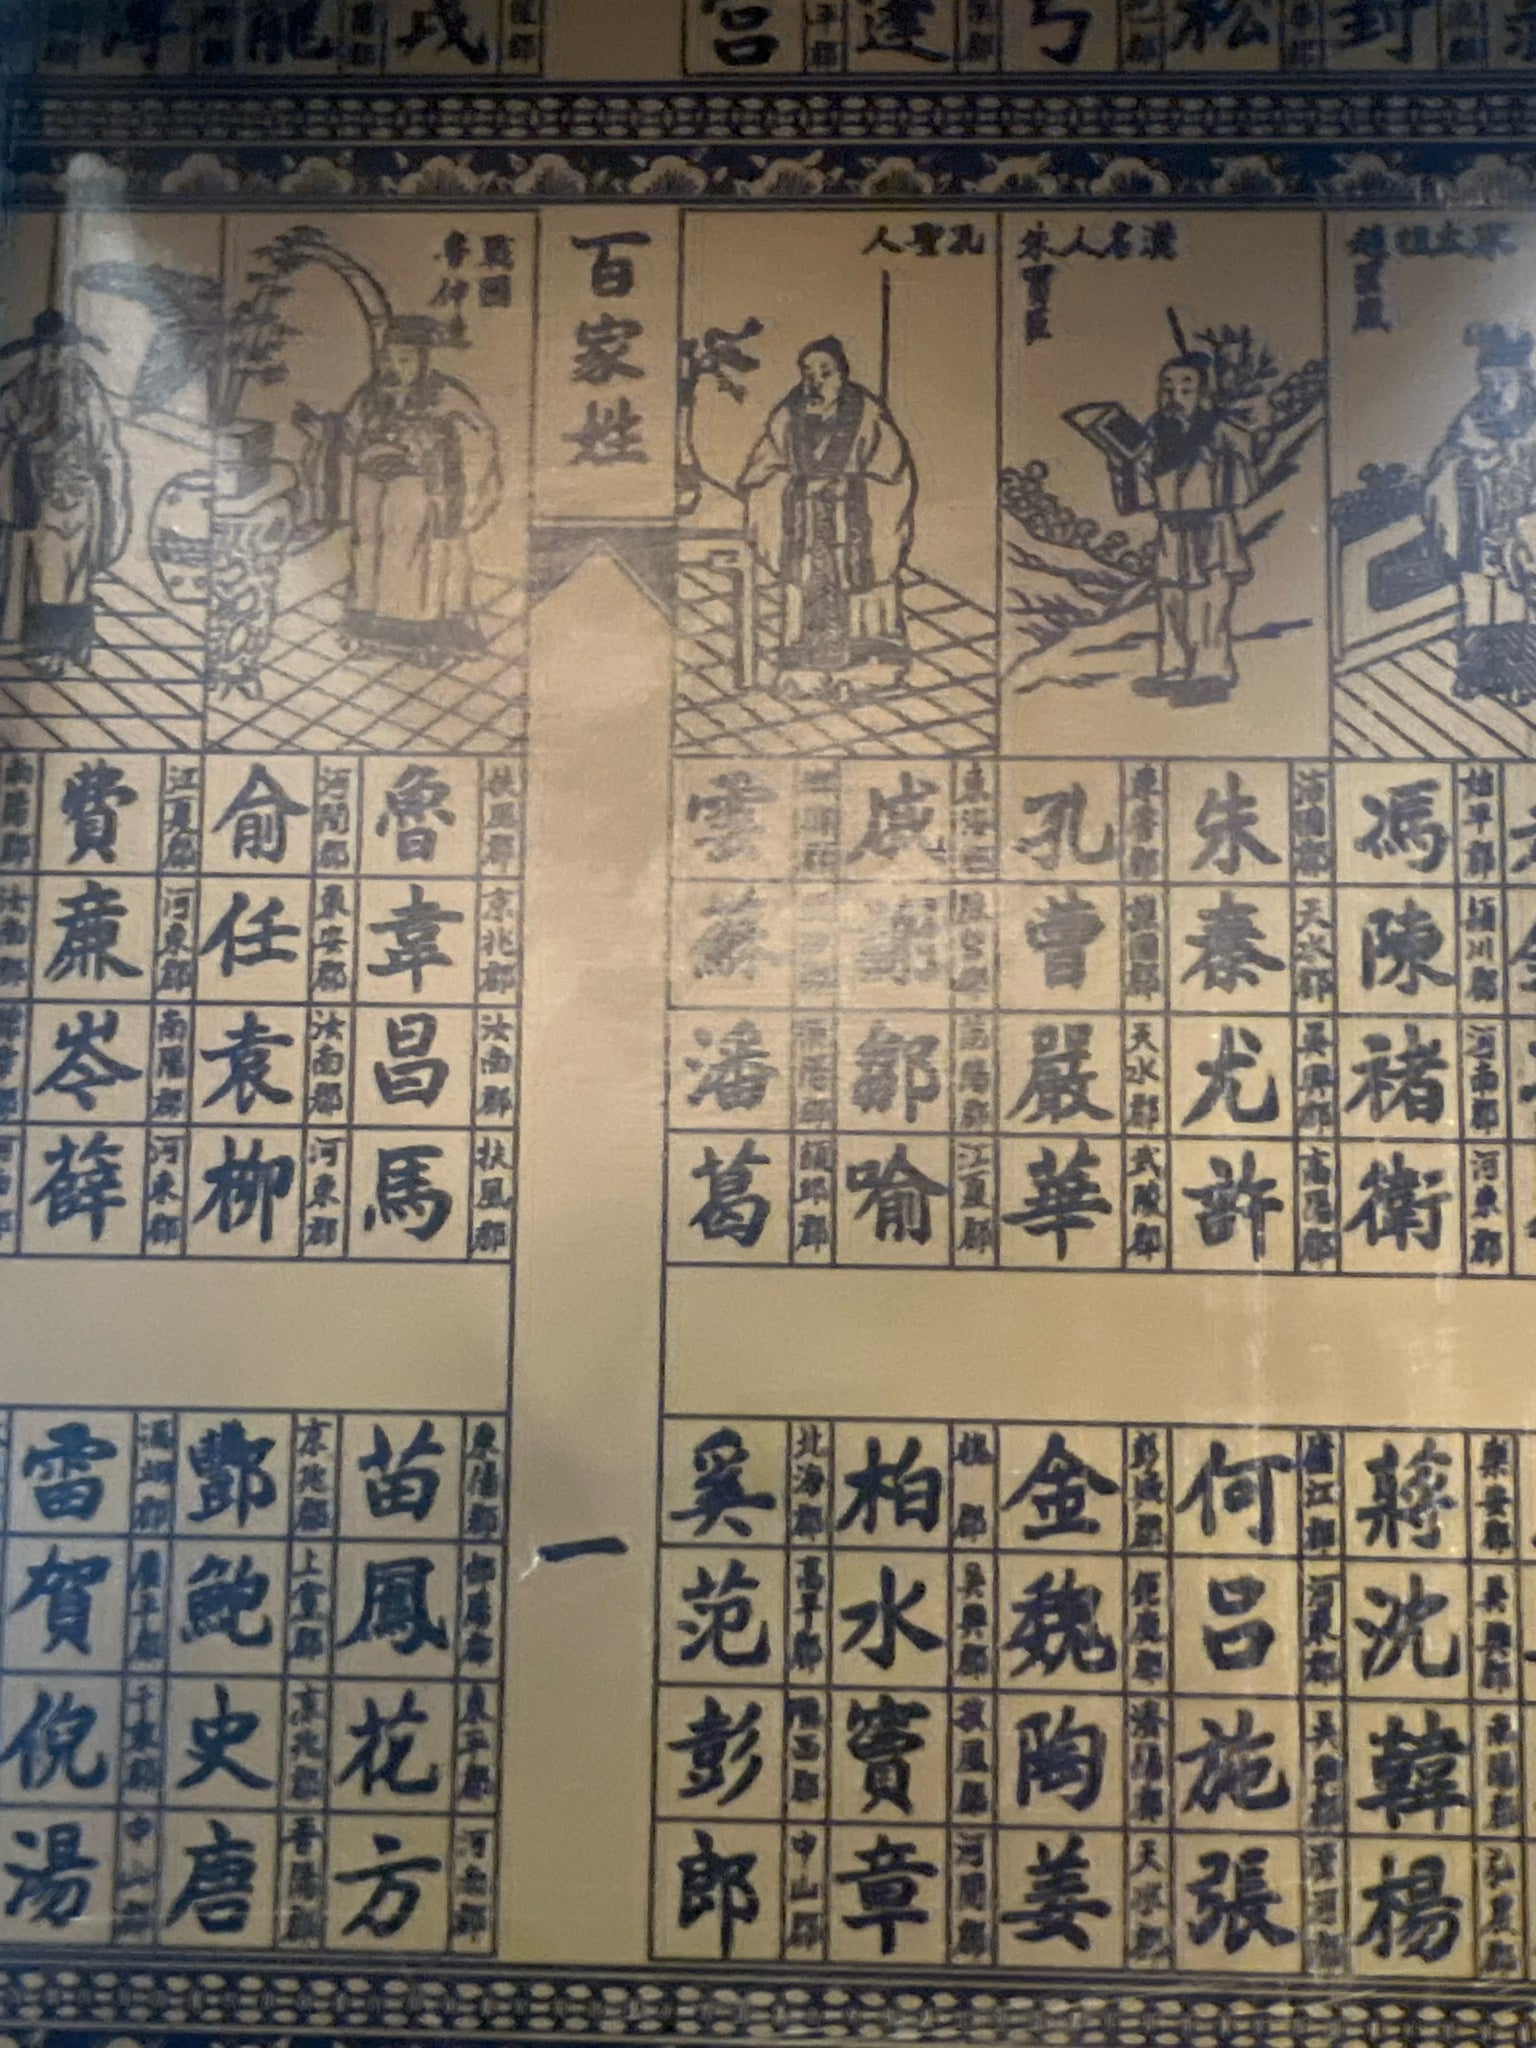 封
弓
宮
戎
龍
宋太祖
趙匡胤
漢名人
朱買臣
孔聖人
百家姓
戰國
魯仲連
始平郡 潁川郡 河南郡 河東郡
馮陳褚衛
沛國郡 天水郡 吳興郡 高陽郡
朱秦尤許
東魯郡 魯國郡 天水郡 武陵郡
孔曹嚴華
東海郡 江夏郡
戚謝鄒喻
潁郡
雲蘇潘葛
扶風郡 京兆郡 汝南郡 扶風郡
魯韋昌馬
河間郡 東安郡 汝南郡 河東郡
俞任袁柳
江夏郡 河東郡 南陽郡 河東郡
費廉岑薛
樂安郡 吳興郡 南陽郡 弘農郡
蔣沈韓楊
廬江郡 河東郡 吳興郡 清河郡
何呂施張
彭城郡 鉅鹿郡 濟陽郡 天水郡
金魏陶姜
魏郡 吳興郡 扶風郡 河間郡
柏水竇章
北海郡 高平郡 隴西郡 中山郡
奚范彭郎
一
東陽郡 郃陽郡 東平郡 河南郡
苗鳳花方
京兆郡 上黨郡 京兆郡 晉陽郡
酆鮑史唐
馮翊郡 廣平郡 千乘郡 中山郡
雷賀倪湯